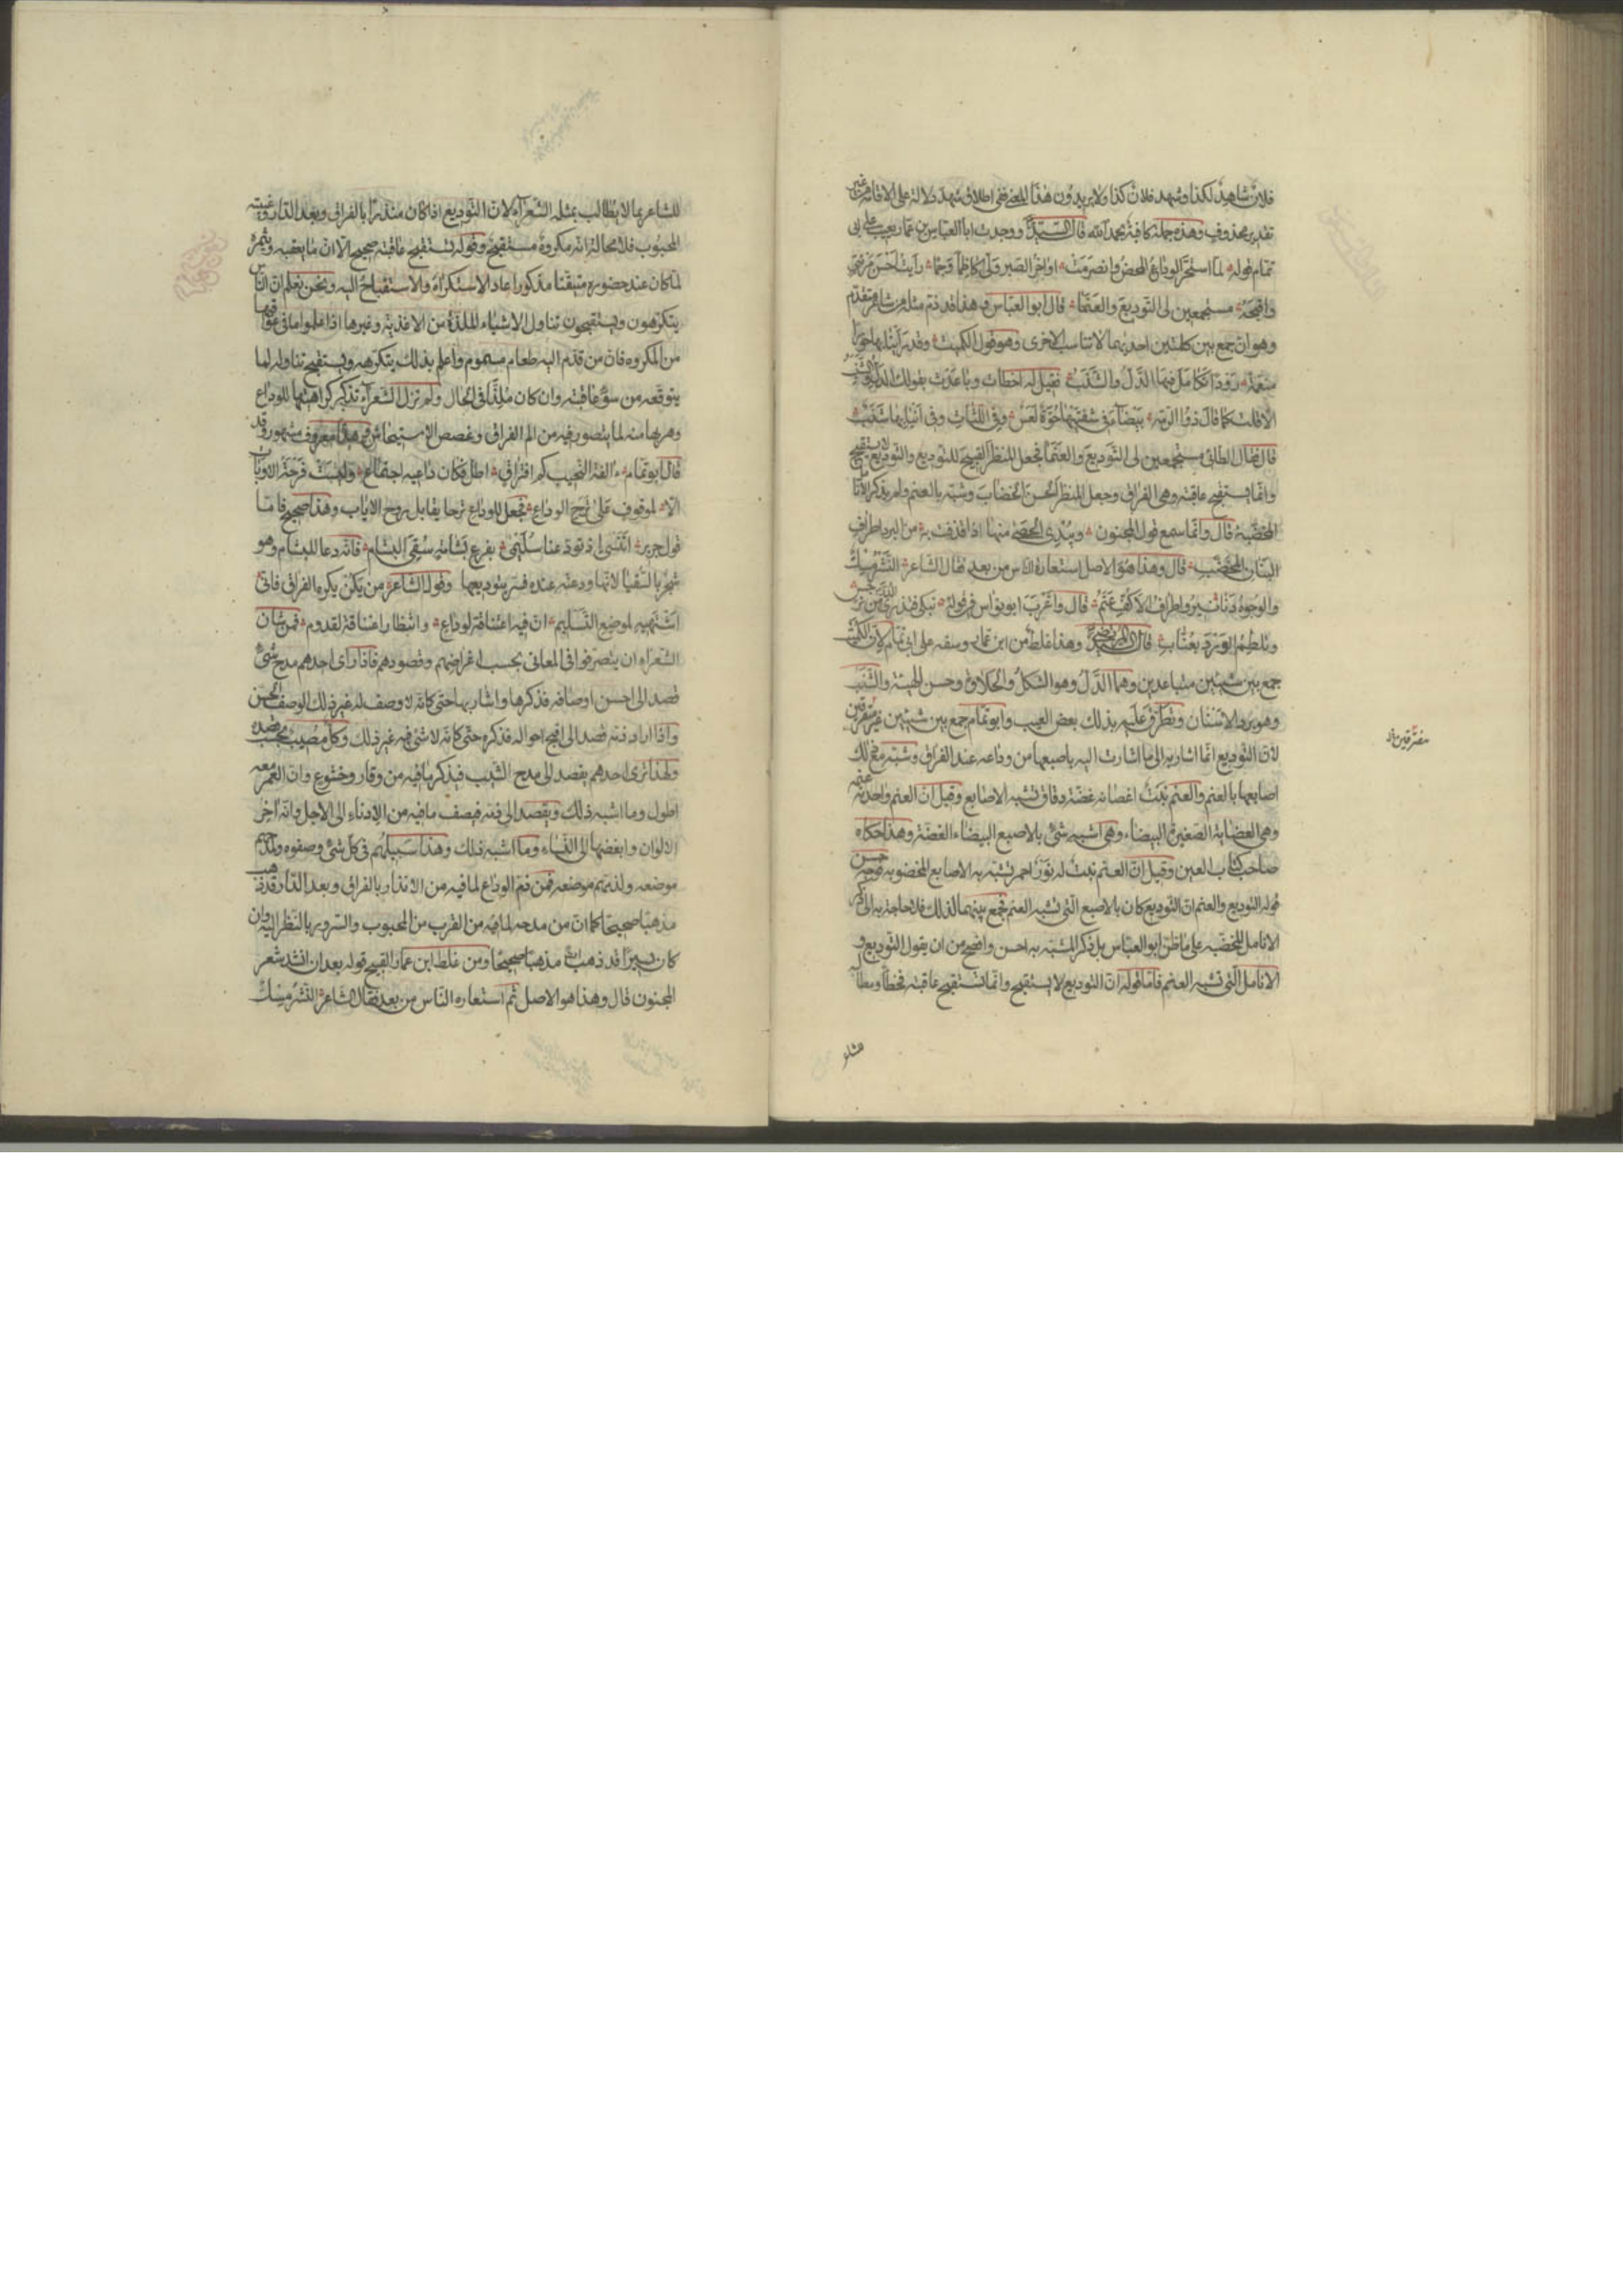 فلان شاهد لكذا وشهد فلان كذا ولا يريدون هذا المعنى ففي اطلاق شهد دلالة على الاقامة من غير
تقدير محذوف وهذه جملة كافية بحمد الله قال السيد ووجدت ابا العباس بن عمار يعيب على ابي
تمام قوله لما استحر الوداع المحض وانصرمت اواخر الصبر ولى كاظما وجما رايت احسن مرئي
واقبحه مستجمعين لي التوديع والعنما قال ابو العباس وهذا قد ذم مثله من شاعر متقدم
وهو ان جمع بين كلمتين احديهما لا تناسب الاخرى وهو قول الكميت وقد راينا بها حورا
منعمة رودا تكامل فيها الدل والشنب فقيل له اخطات وباعدت بقولك الدل والشنب
الا قلت كما قال ذو الرمة بيضاء في شفتيها حوة لعس وفي اللثات وفي انيابها شنب
قال فقال الطائي مستجمعين لي التوديع والعنما فجعل المنظر القبيح للتوديع والتوديع لا يستقبح
وانما يستقبح عاقبته وهي الفراق وجعل المنظر الحسن الخضاب وشبهه بالعنم ولم يذكر الانامل
المخضبة قال وانما سمع قول المجنون ويبدي الحصى منها اذا قذفت به من البرد اطراف
البنان المخضب قال وهذا هو الاصل استعاره الناس من بعد فقال الشاعر النشر مسك
والوجوه دنانير واطراف الاكف عنم قال واغرب ابو نواس في قوله تبكي فتذري الدر من نرجس
وتلطم الورد بعناب قال المرتضى وهذا غلط من ابن عمار وسفه على ابي تمام لان الكميت
جمع بين شيئين متباعدين وهما الدل وهو الشكل والحلاوة وحسن الهيئة والشنب
وهو برد الاسنان وتطرق عليه بذلك بعض العيب وابو تمام جمع بين شيئين غير متفرقين
لان التوديع انما اشار به الى ما اشارت اليه باصبعها من وداعه عند الفراق وشبه مع ذلك
اصابعها بالعنم والعنم نبت اغصانه غضة دقاق تشبه الاصابع وقيل ان العنم واحدته عنمة
وهي العضاية الصغيرة البيضاء وهي اشبه شيء بالاصبع البيضاء الغضة وهذا حكاه
صاحب كتاب العين وقيل ان العنم نبت له نور احمر تشبه به الاصابع المخضوبة فوجه حسن
قوله التوديع والعنم ان التوديع كان بالاصبع التي تشبه العنم فجمع بينهما لذلك فلا حاجة به الى ذكر
الانامل المخضبة على ما ظن ابو العباس بل ذكر المشبه به احسن وافصح من ان يقول التوديع و
الانامل التي تشبه العنم فاما قوله ان التوديع لا يستقبح وانما تستقبح عاقبته فخطأ ومطالبة
للشاعر بما لا يطالب بمثله الشعراء لان التوديع اذا كان منذرا بالفراق وبعد الدار وغيبة
المحبوب فلا محالة انه مكروه مستقبح وقوله تستقبح عاقبته صحيح الا ان ما يعقبه ويثمره
لما كان عند حضوره متيقنا مذكورا عاد الاستكراه والاستقباح اليه ونحن نعلم ان الناس
يتكرهون ويستقبحون تناول الاشياء الملذة من الاغذية وغيرها اذا علموا ما في عواقبها
من المكروه فان من قدم اليه طعام مسموم واعلم بذلك يتكرهه ويستقبح تناوله لما
يتوقعه من سوء عاقبته وان كان ملذا في الحال ولم تزل الشعراء تذكر كراهتها للوداع
وهربها منه لما يتصور فيه من الم الفراق وغصص الاستيحاش وهذا معروف مشهور وقد
قال ابو تمام االفة النحيب كم افتراق اطل فكان داعية اجتماع وليست فرحة الاوبات
الا لموقوف على ترح الوداع فجعل للوداع ترحا يقابل بروح الاياب وهذا صحيح فاما
قول جرير اتنسى اذ تودعنا سليمى بفرع بشامة سقي البشام فانه دعا للبشام وهو
شجر بالسقيا لانها ودعته عنده فسر بتوديعها وقول الشاعر من يكن يكره الفراق فاني
اشتهيه لموضع التسليم ان فيه اعتناقة لوداع وانتظار اعتناقة لقدوم فمن شان
الشعراء ان يتصرفوا في المعاني بحسب اغراضهم وقصودهم فاذا راى احدهم مدح شيء
قصد الى احسن اوصافه فذكرها واشار بها حتى كانه لا وصف له غير ذلك الوصف الحسن
واذا اراد ذمه قصد الى اقبح احواله فذكره حتى كانه لا شيء فيه غير ذلك وكل مصيب بحسب قصده
ولهذا ترى احدهم يقصد الى مدح الشيب فيذكر ما فيه من وقار وخشوع وان العمر معه
اطول وما اشبه ذلك ويقصد الى ذمه فيصف ما فيه من الادناء الى الاجل وانه اخر
الالوان وابغضها الى النساء وما اشبه ذلك وهذا سبيلهم في كل شيء وصفوه ولمدحهم
موضعه ولذمهم موضعه فمن ذم الوداع لما فيه من الانذار بالفراق وبعد الدار قد ذهب
مذهبا صحيحا كما ان من مدحه لما فيه من القرب من المحبوب والسرور بالنظر اليه وان
كان يسيرا قد ذهب ايضا مذهبا صحيحا ومن غلط ابن عمار القبيح قوله بعد ان انشد شعر
المجنون قال وهذا هو الاصل ثم استعاره الناس من بعد فقال الشاعر النشر مسك